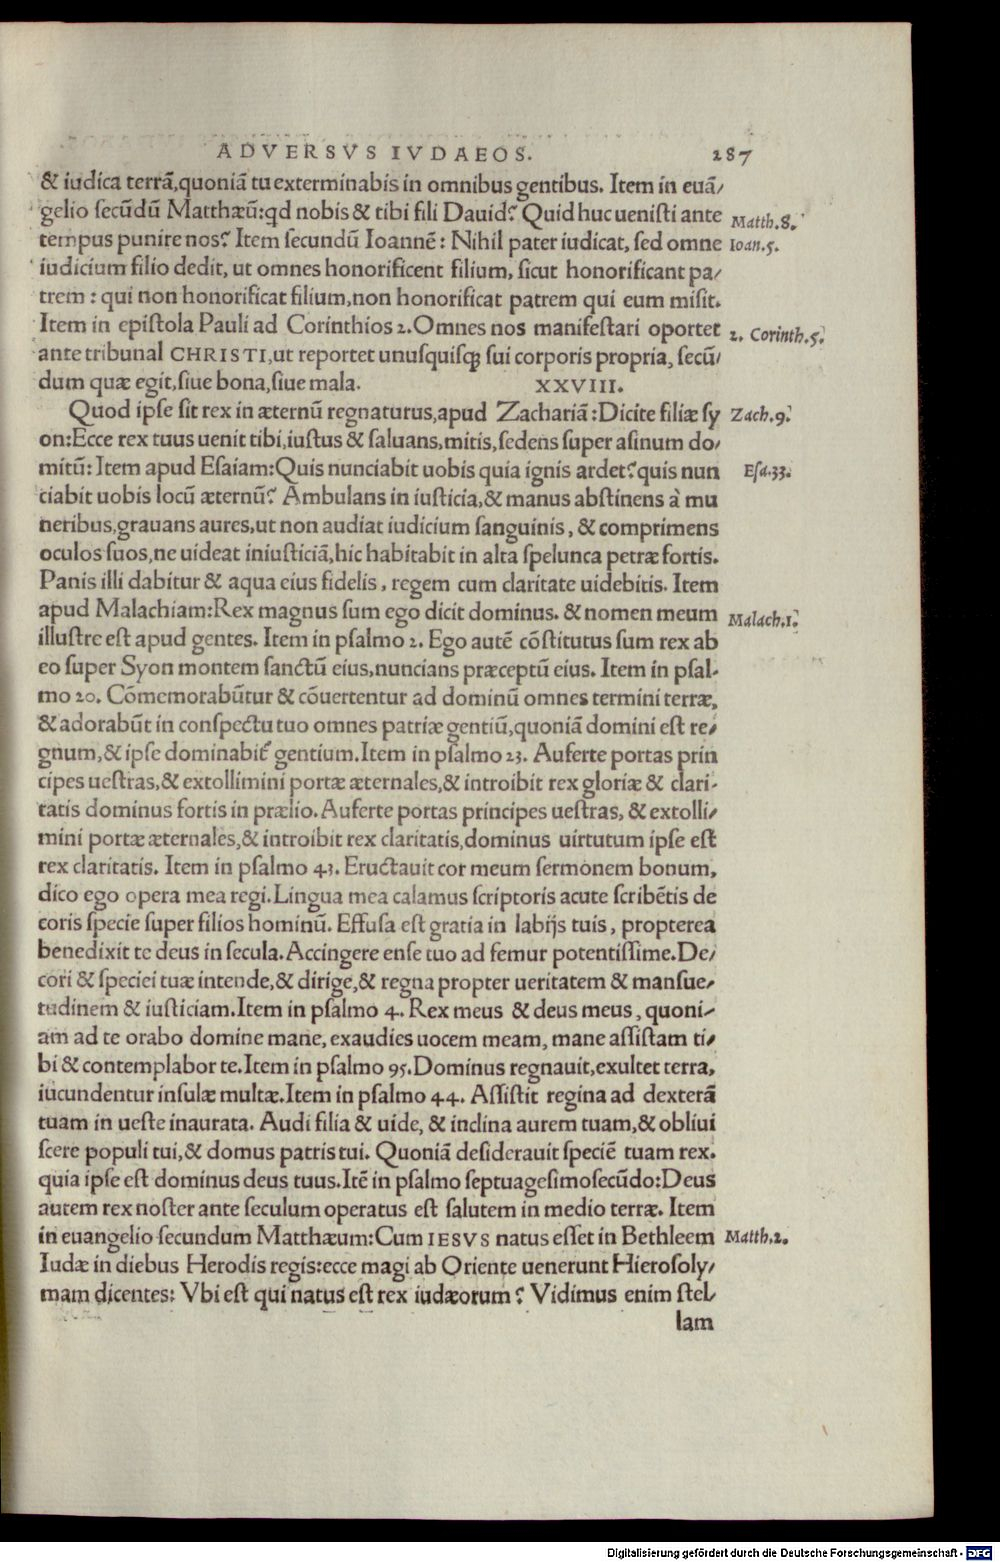 ADVERSVS IVDAEOS. 287
& iudica terrã,quoniã tu exterminabis in omnibus gentibus. Item in euã/
gelio ſecũdũ Matthæũ:qd nobis & tibi fili Dauid? Quid huc ueniſti ante
Matth.8.
tempus punire nos? Item ſecundũ Ioannẽ: Nihil pater iudicat, ſed omne
Ioan.5.
iudicium filio dedit, ut omnes honorificent filium, ſicut honorificant pa/
trem: qui non honorificat filium,non honorificat patrem qui eum miſit.
Item in epiſtola Pauli ad Corinthios 2.Omnes nos manifeſtari oportet
2. Corinth.5.
ante tribunal CHRISTI,ut reportet unuſquiſqꝫ ſui corporis propria, ſecũ/
dum quæ egit,ſiue bona,ſiue mala. XXVIII.
Quod ipſe ſit rex in æternũ regnaturus,apud Zachariã:Dicite filiæ ſy
Zach.9.
on:Ecce rex tuus uenit tibi,iuſtus & ſaluans,mitis,ſedens ſuper aſinum do/
mitũ: Item apud Eſaiam:Quis nunciabit uobis quia ignis ardet?quis nun
Eſa.33.
ciabit uobis locũ æternũ? Ambulans in iuſticia,& manus abſtinens à mu
neribus,grauans aures,ut non audiat iudicium ſanguinis, & comprimens
oculos ſuos,ne uideat iniuſticiã,hic habitabit in alta ſpelunca petræ fortis.
Panis illi dabitur & aqua eius fidelis, regem cum claritate uidebitis. Item
apud Malachiam:Rex magnus ſum ego dicit dominus. & nomen meum
Malach.1.
illuſtre eſt apud gentes. Item in pſalmo 2. Ego autẽ cõſtitutus ſum rex ab
eo ſuper Syon montem ſanctũ eius,nuncians præceptũ eius. Item in pſal-
mo 20. Cõmemorabũtur & cõuertentur ad dominũ omnes termini terræ,
& adorabũt in conſpectu tuo omnes patriæ gentiũ,quoniã domini eſt re/
gnum,& ipſe dominabit᷑ gentium.Item in pſalmo 23. Auferte portas prin
cipes ueſtras,& extollimini portæ æternales,& introibit rex gloriæ & clari-
tatis dominus fortis in prælio.Auferte portas principes ueſtras, & extolli/
mini portæ æternales,& introibit rex claritatis,dominus uirtutum ipſe eſt
rex claritatis. Item in pſalmo 43. Eructauit cor meum ſermonem bonum,
dico ego opera mea regi.Lingua mea calamus ſcriptoris acute ſcribẽtis de
coris ſpecie ſuper filios hominũ. Effuſa eſt gratia in labijs tuis, propterea
benedixit te deus in ſecula.Accingere enſe tuo ad femur potentiſſime.De/
cori & ſpeciei tuæ intende,& dirige,& regna propter ueritatem & manſue/
tudinem & iuſticiam.Item in pſalmo 4. Rex meus & deus meus, quoni/
am ad te orabo domine mane, exaudies uocem meam, mane aſſiſtam ti/
bi & contemplabor te.Item in pſalmo 95.Dominus regnauit,exultet terra,
iucundentur inſulæ multæ.Item in pſalmo 44. Aſſiſtit regina ad dexterã
tuam in ueſte inaurata. Audi filia & uide, & inclina aurem tuam,& obliui
ſcere populi tui,& domus patris tui. Quoniã deſiderauit ſpeciẽ tuam rex.
quia ipſe eſt dominus deus tuus.Itẽ in pſalmo ſeptuageſimoſecũdo:Deus
autem rex noſter ante ſeculum operatus eſt ſalutem in medio terræ. Item
in euangelio ſecundum Matthæum:Cum IESVS natus eſſet in Bethleem
Matth.2.
Iudæ in diebus Herodis regis:ecce magi ab Oriente uenerunt Hieroſoly/
mam dicentes: Vbi eſt qui natus eſt rex iudæorum? Vidimus enim ſtel/
lam
Digitalisierung gefördert durch die Deutsche Forschungsgemeinschaft - DFG